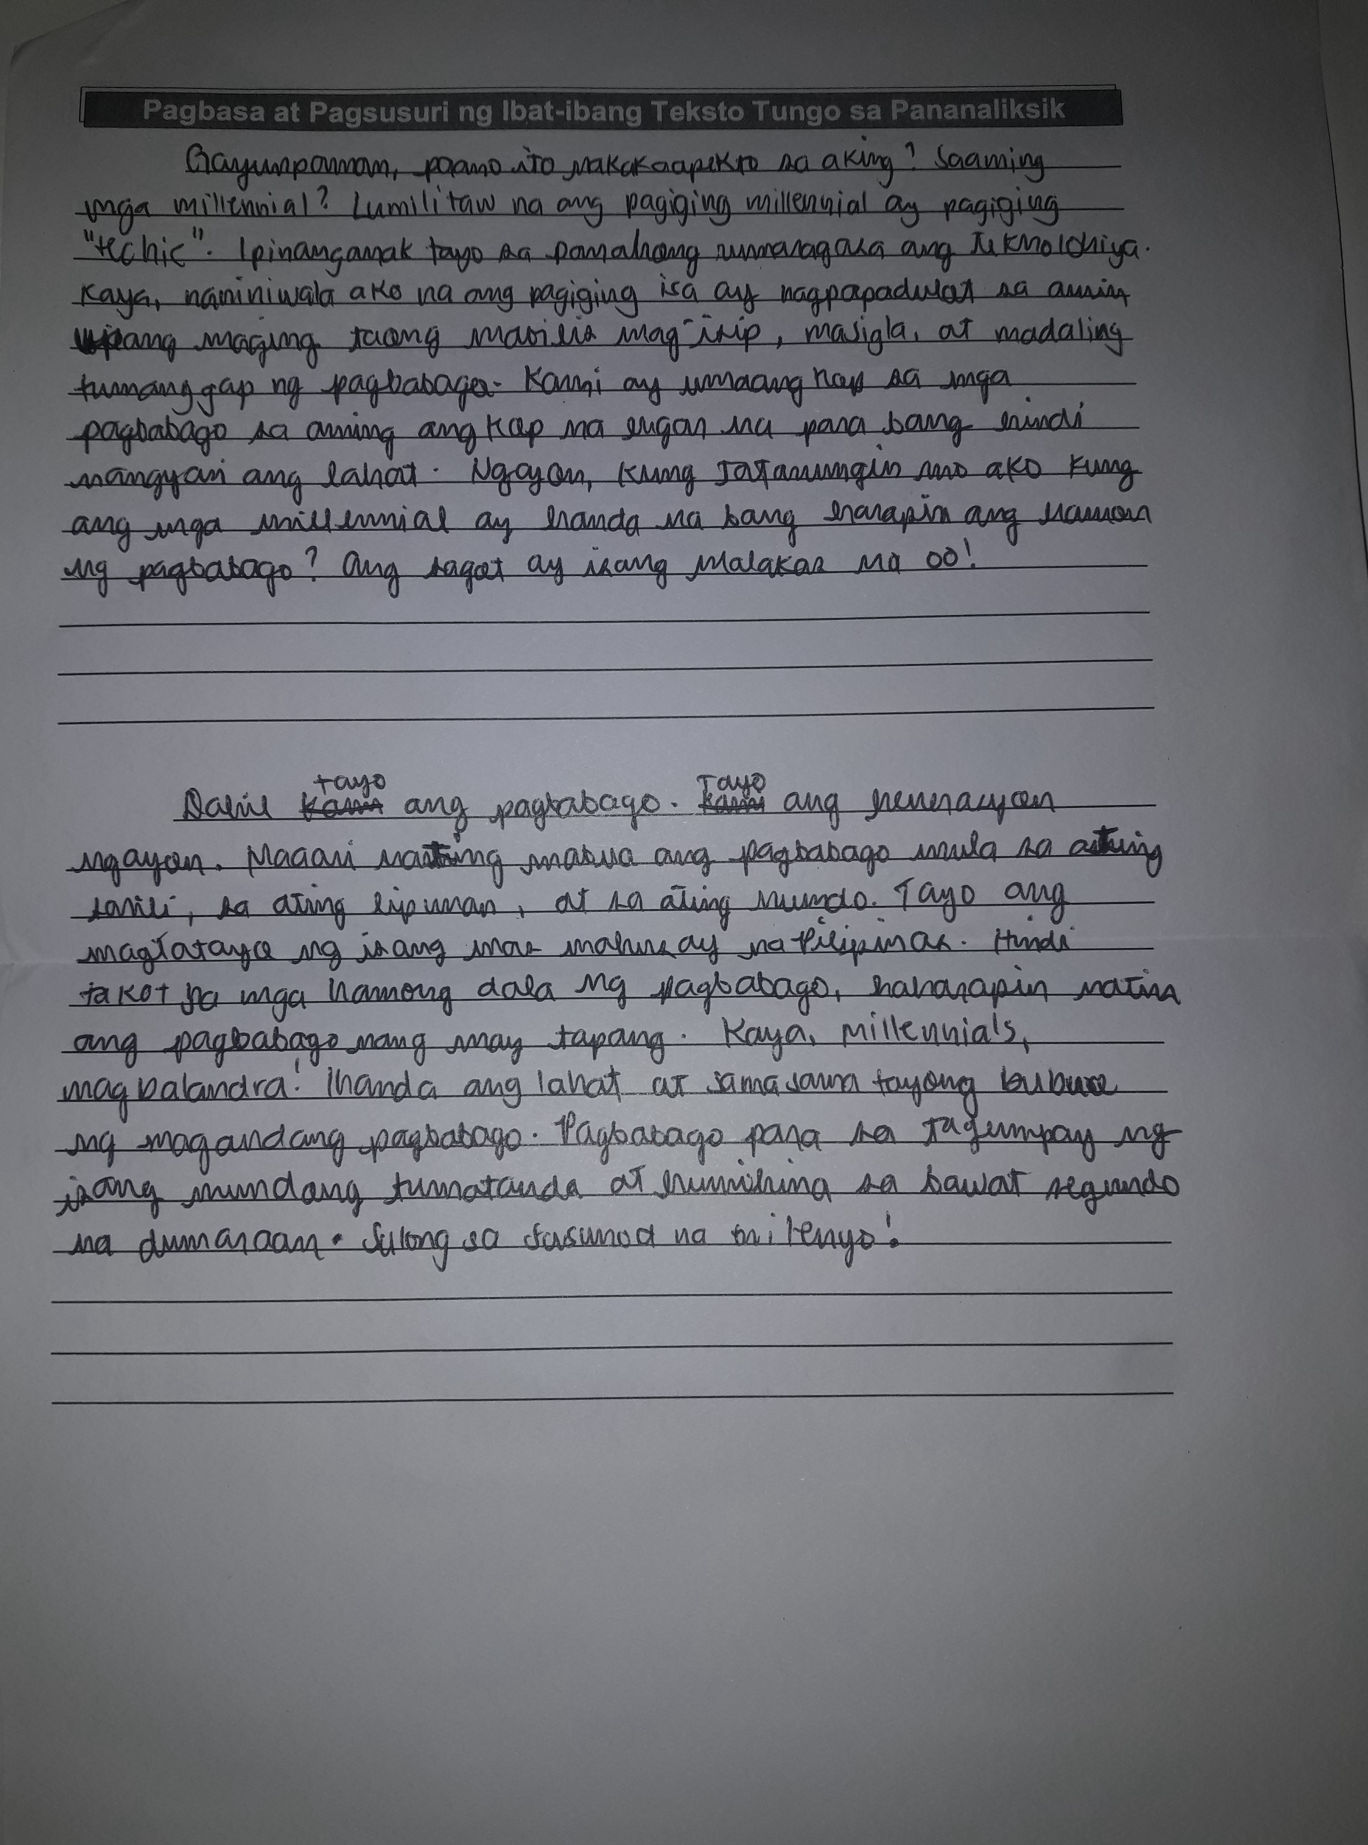 Pagbasa at Pagsusuri ng Ibat-ibang Teksto Tungo sa Pananaliksik
Gayunpaman, paano ito nakakaapekto sa aking? Saaming
mga millennial? Lumilitaw na ang pagiging millennial ay pagiging
"techie". Ipinanganak tayo sa panahong rumaragasa ang teknolohiya.
Kaya, naniniwala ako na ang pagiging isa ay nagpapadulot sa amin
upang maging taong mabilis mag-isip, masigla, at madaling
tumanggap ng pagbabago. Kami ay umaangkop sa mga
pagbabago sa aming angkap na lugar na para bang hindi
nangyari ang lahat. Ngayon, kung tatanungin mo ako kung
ang mga millennial ay handa na bang harapin ang hamon
ng pagbabago? Ang sagot ay isang malakas na oo!
tayo Tayo
Dahil kami ang pagbabago. Kami ang henerasyon
ngayon. Maaari nating mabuo ang pagbabago mula sa ating
sarili, sa ating lipunan, at sa ating mundo. Tayo ang
magtatayo ng isang mas mahusay na Pilipinas. Hindi
takot sa mga hamong dala ng pagbabago, haharapin natin
ang pagbabago nang may tapang. Kaya, millennials,
magbalandra! Ihanda ang lahat at samasama tayong bubuo
ng magandang pagbabago. Pagbabago para sa tagumpay ng
isang mundang tumatanda at humihina sa bawat segundo
na dumaraan. Sulong sa susunod na milenyo!